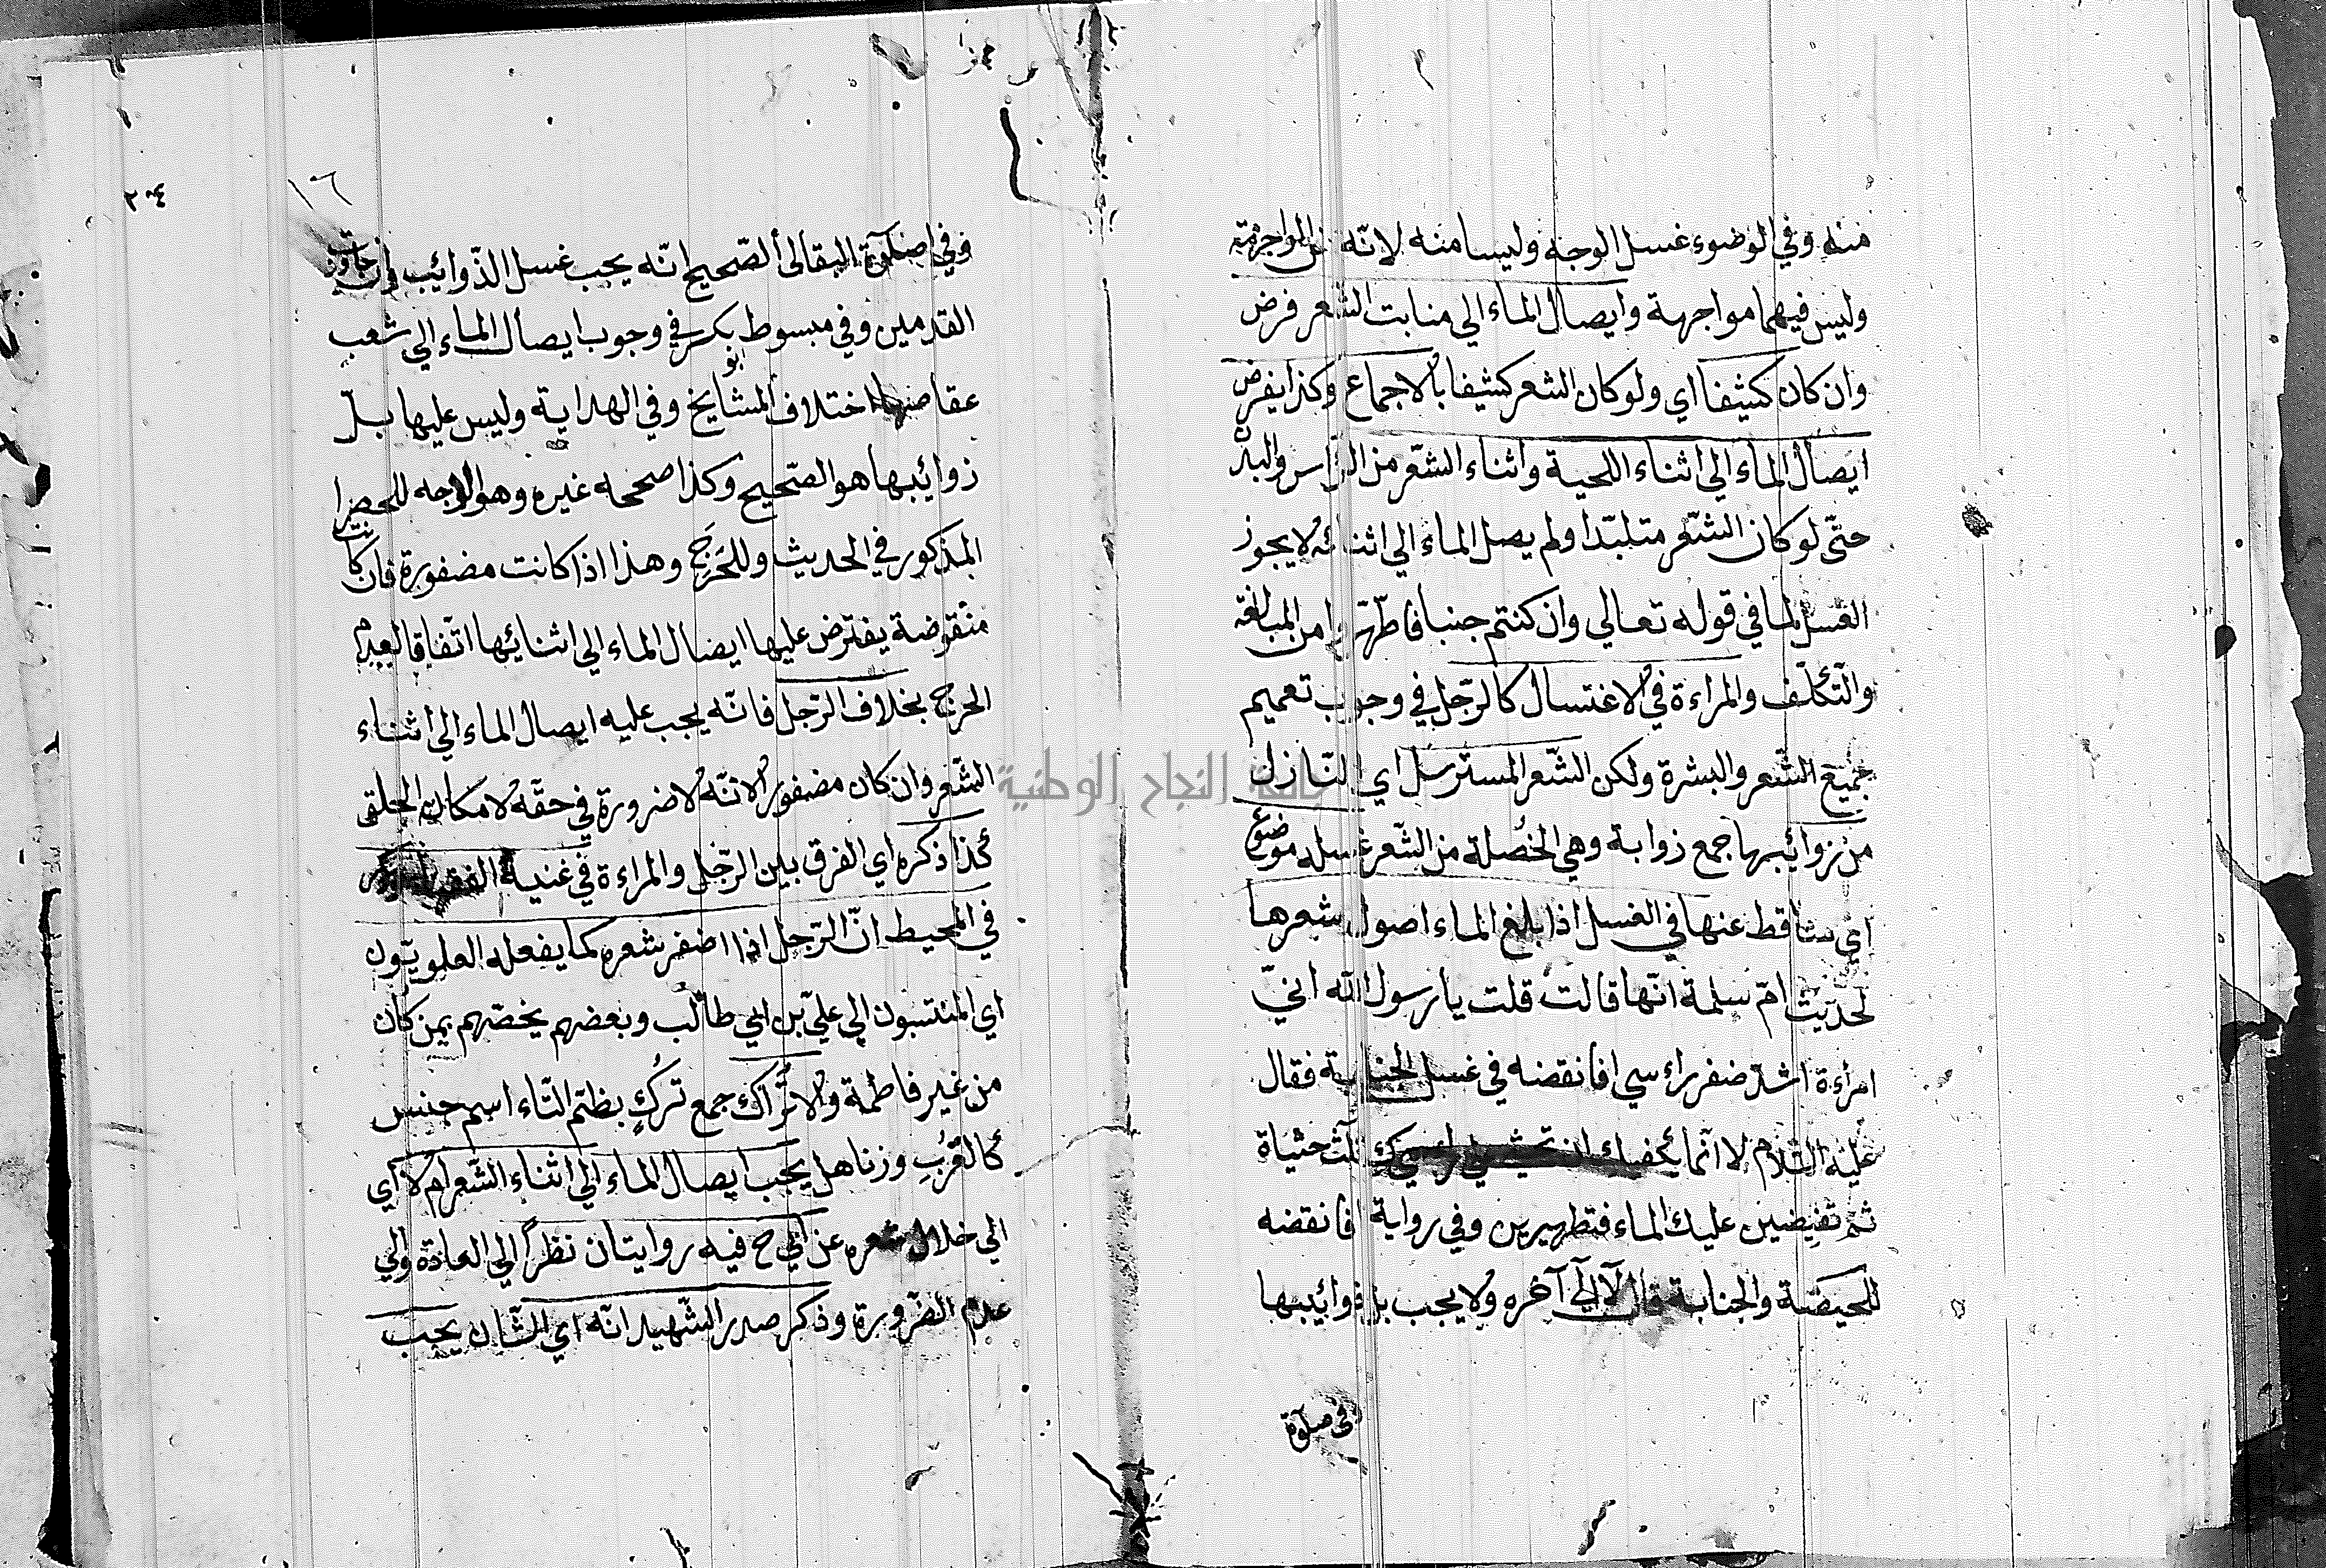 منه وفي الوضوء غسل الوجه وليسا منه لانّه من المواجهة
وليس فيهما مواجهة وايصال الماء الي منابت الشعر فرض
وان كان كثيفا اي ولو كان الشعر كثيفا بالاجماع وكذا يفرض
ايصال الماء الي اثناء اللحية واثناء الشّعر من الرّاس والبدن
حتّى لو كان الشّعر متلبّدا ولم يصل الماء الي اثنائه لا يجوز
الغسل لما في قوله تعالي وان كنتم جنبا فاطّهّروا من المبالغة
والتّكلّف والمراءة في الاغتسال كالرّجل في وجوب تعميم
جميع الشّعر والبشرة ولكن الشّعر المسترسل اي النّازل
من زوائبها جمع زوابة وهي الخُصلة من الشّعر غسله موضوع
اي ساقط عنها في الغسل اذا بلغ الماء اصول شعرها
لحديث امّ سلمة انّها قالت قلت يا رسول الله انيّ
امراءة اشدّ ضفر راءسي افانقضه في غسل الجنابة فقال
عليه السّلام لا انّما يكفيك ان تحثي علي راسك ثلث حثياة
ثم تفيضين عليك الماء فتطهرين وفي رواية افانقضه
للحيضة والجنابة قال لا الي آخره ولا يجب بل ذوائبها
في صلوة
١٦
٢٠٤
وفي صلوة البقالى الصّحيح انّه يجب غسل الذّوائب وان جاوزت
القدمين وفي مبسوط ابو بكر في وجوب ايصال الماء الي شعب
عقاصها اختلاف المشايخ وفي الهداية وليس عليها بلّ
ذوائبها هو الصّحيح وكذا صححه غيره وهو الاوجه للحصر
المذكور في الحديث وللحَرَج وهذا اذا كانت مضفورة فان كانت
منقوضة يفترض عليها ايصال الماء الي اثنائها اتّفاقا لعدم
الحرج بخلاف الرّجل فانّه يجب عليه ايصال الماء الي اثناء
الشّعر وان كان مضفورا لانّه لا ضرورة في حقّه لامكان الحلق
كذا ذكره اي الفرق بين الرّجل والمراءة في غنية الفقهاء
في المحيط انّ الرّجل اذا اضفر شعره كما يفعله العلويّون
اي المنتسبون الي عليّ بن ابي طالب وبعضهم يخصّهم بمن كان
من غير فاطمة والاتراك جمع تركٍ بظتم التّاء اسم جنس
كالعُرُبِ وزنا هل يجب ايصال الماء الي اثناء الشّعر ام لا اي
الي خلال شعره عن ابي ح فيه روايتان نظراً الي العادة والي
عدم الضّرورة وذكر صدر الشّهيد انّه اي الشّان يجب
جامعة النجاح الوطنية